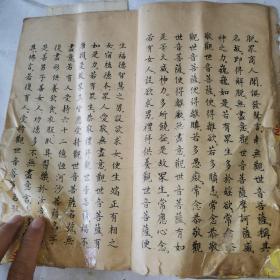 脫眾商人聞俱發聲言南無觀世音菩薩稱其
名故即得解脫無盡意觀世音菩薩摩訶薩威
神之力巍巍如是若有眾生多於婬欲常念恭敬
觀世音菩薩便得離欲若多瞋恚常念恭敬
觀世音菩薩便得離瞋若多愚癡常念恭敬觀
世音菩薩便得離癡無盡意觀世音菩薩有如
是等大威神力多所饒益是故眾生常應心念
若有女人設欲求男禮拜供養觀世音菩薩便
生福德智慧之男設欲求女便生端正有相之
女宿植德本眾人愛敬無盡意觀世音菩薩有
如是力若有眾生恭敬禮拜觀世音菩薩福不
唐捐是故眾生皆應受持觀世音菩薩名號無
盡意若有人受持六十二億恒河沙菩薩名字
復盡形供養飲食衣服臥具醫藥於汝意云何
是善男子善女人功德多不無盡意言甚多世
尊佛言若復有人受持觀世音菩薩